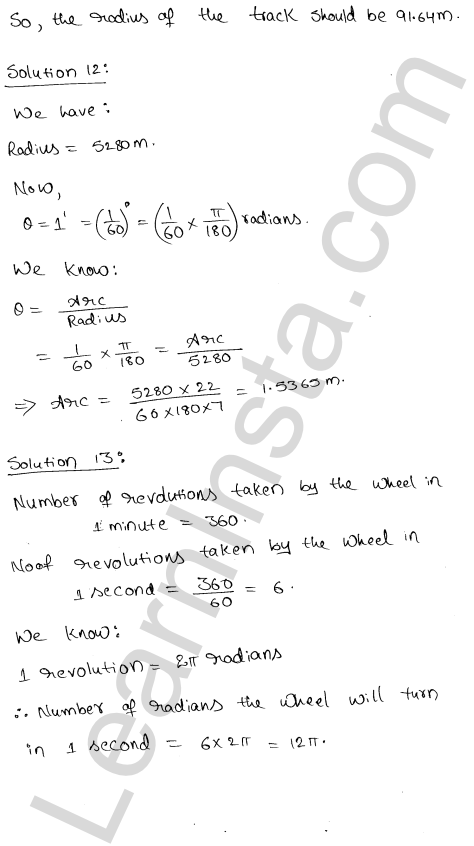 So, the radius of the track should be 91.64m.
Solution 12:
We have:
Radius = 5280m.
Now,
θ = 1' = (1/60)° = (1/60 × π/180) radians.
We know:
θ = Arc/Radius
= 1/60 × π/180 = Arc/5280
⇒ Arc = 5280 × 22/60×180×7 = 1.5365m.
Solution 13:
Number of revolutions taken by the wheel in
1 minute = 360.
No of revolutions taken by the wheel in
1 second = 360/60 = 6.
We know:
1 revolution = 2π radians
∴ Number of radians the wheel will turn
in 1 second = 6×2π = 12π.
LearnInsta.com